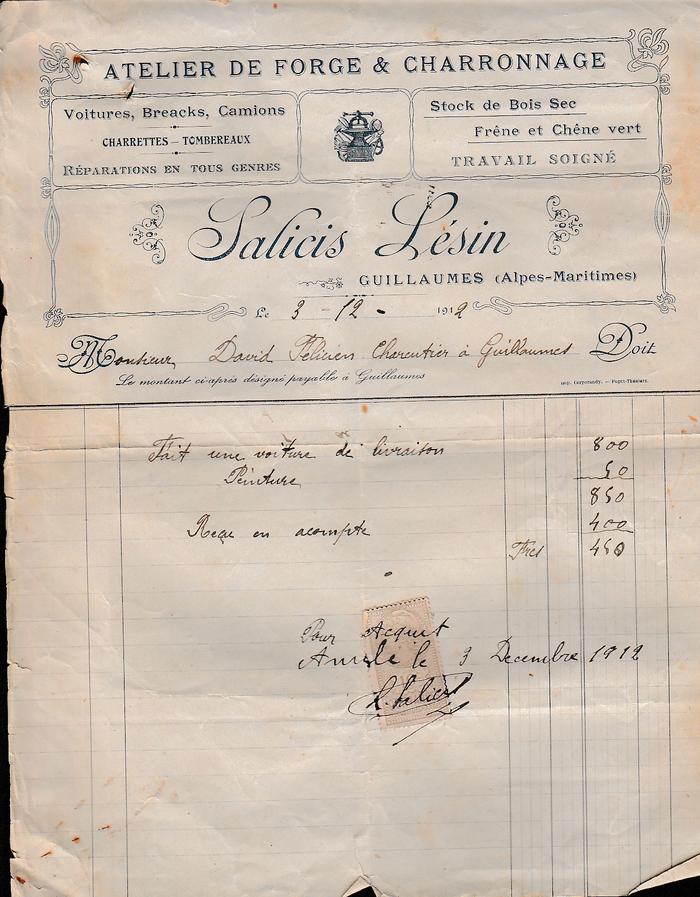 ATELIER DE FORGE & CHARRONNAGE
Voitures, Breacks, Camions
CHARRETTES — TOMBEREAUX
RÉPARATIONS EN TOUS GENRES
Stock de Bois Sec
Frêne et Chêne vert
TRAVAIL SOIGNÉ
Salicis Lésin
GUILLAUMES (Alpes-Maritimes)
Le 3 - 12 - 1912
Monsieur David Félicien Charentier à Guillaumes Doit
Le montant ci-après désigné payable à Guillaumes
Imp. — Puget-Théniers.
Fait une voiture de livraison 800
Peinture 50
850
Reçu en acompte 400
450
Pour Acquit
le 3 Decembre 1912